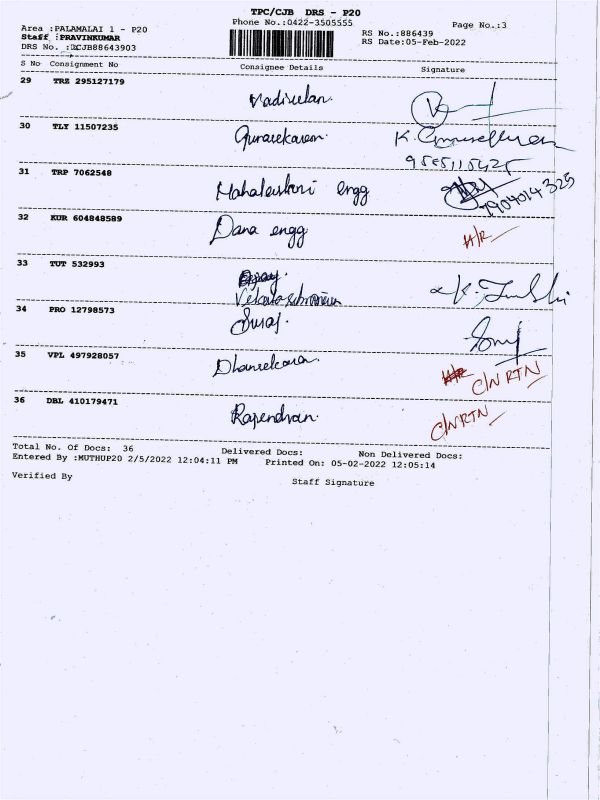 TPC/CJB DRS - P20
Phone No.:0422-3505555
Page No.:3
Area :PALAMALAI 1 - P20
Staff :PRAVINKUMAR
DRS No. :CJB88643903
RS No.:886439
RS Date:05-Feb-2022
S No Consignment No Consignee Details Signature
29 TRZ 295127179
30 TLY 11507235 Gunasekaran.
31 TRP 7062548 Mahalakshmi engg
7904014325
32 KUR 604848589 Dana engg H/R
33 TUT 532993
34 PRO 12798573 Suraj.
35 VPL 497928057 Dhanasekaran. C/N RTN
36 DBL 410179471 Rajendran. C/N RTN
Total No. Of Docs: 36 Delivered Docs: Non Delivered Docs:
Entered By :MUTHUP20 2/5/2022 12:04:11 PM Printed On: 05-02-2022 12:05:14
Verified By Staff Signature